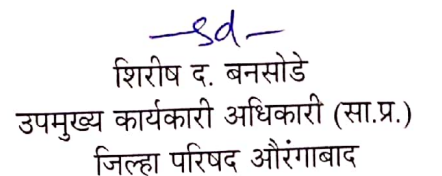 -sd-
शिरीष द. बनसोडे
उपमुख्य कार्यकारी अधिकारी (सा.प्र.)
जिल्हा परिषद औरंगाबाद